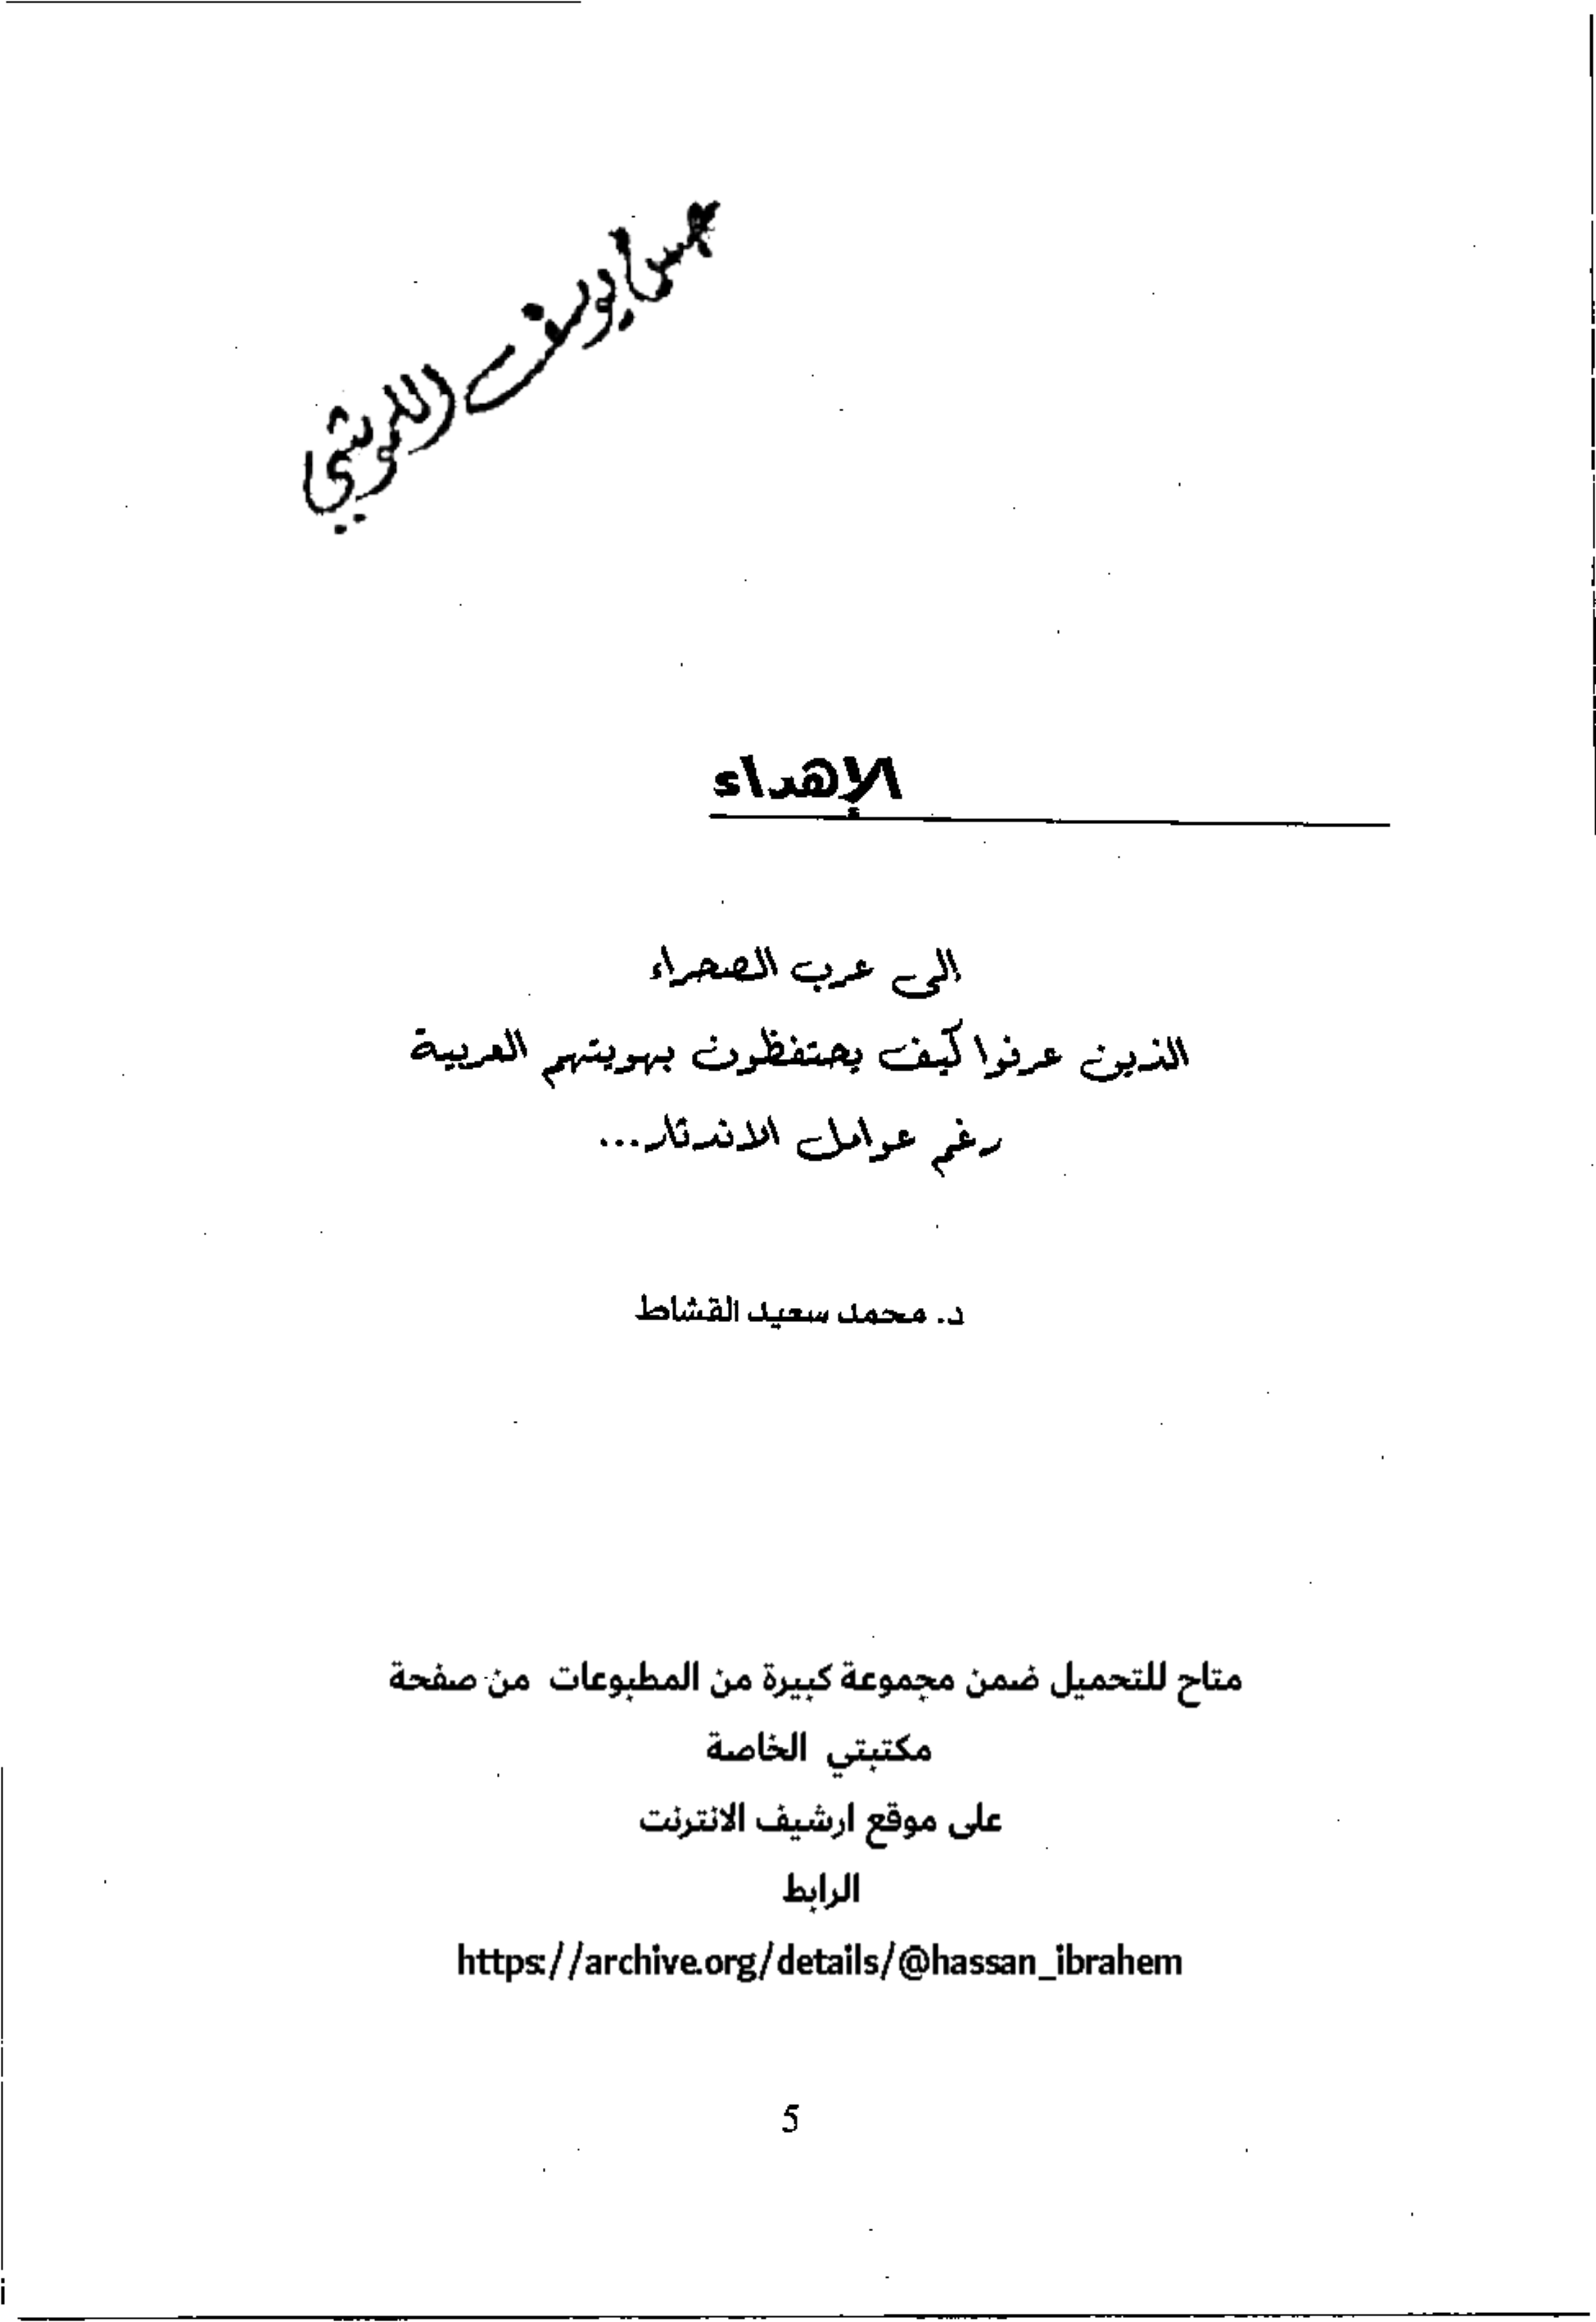 يوسف
الإهداء
إلى عرب الصحراء
الذين عرفوا كيف يحتفظون بهويتهم العربية
رغم عوامل الاندثار...
د. محمد سعيد القشاط
متاح للتحميل ضمن مجموعة كبيرة من المطبوعات من صفحة
مكتبتي الخاصة
على موقع ارشيف الانترنت
الرابط
https://archive.org/details/@hassan_ibrahem
5